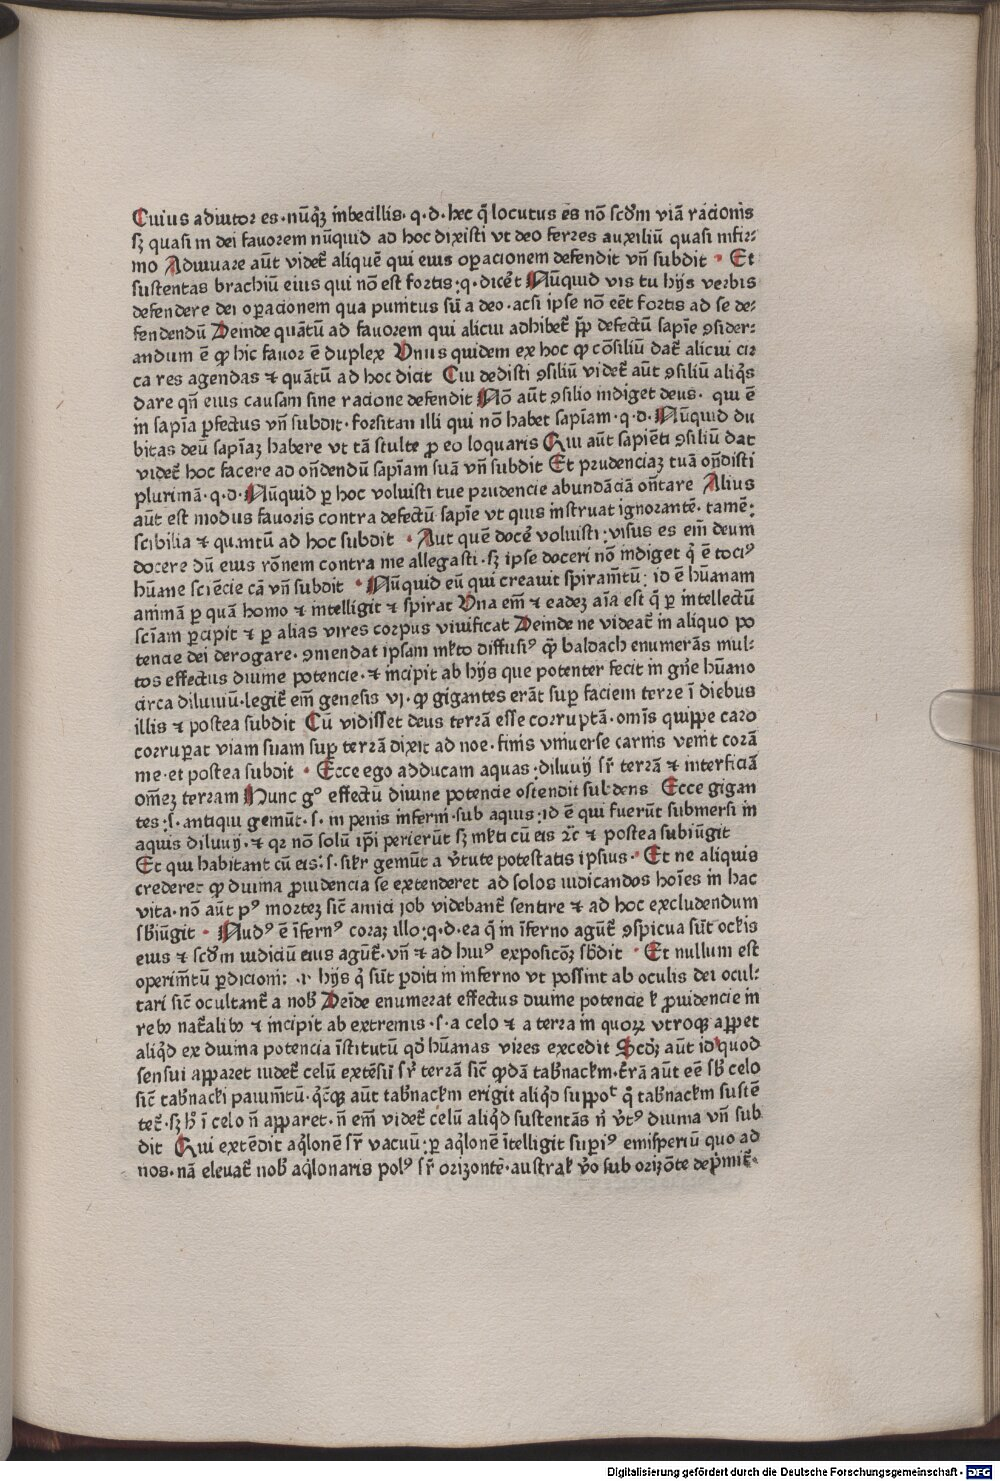 Cuius adiutor es·nūq̄ꝫ inbecillis·q·d·hec q̄ locutus es nō scd̄m viā racionis
sꝫ quasi in dei fauorem nūquid ad hoc dixisti vt deo ferres auxiliū quasi infir⸗
mo Adiuuare aūt videt̄ aliquē qui eius oꝑacionem defendit vn̄ subdit · Et
sustentas brachiū eius qui nō est fortis:q·dicet̄ Nūquid vis tu hijs verbis
defendere dei oꝑacionem qua punitus sū a deo·acsi ipse nō eēt fortis ad se de⸗
fendendū Deinde quātū ad fauorem qui alicui adhibet̄ ꝓp̄ defectū sapīe ꝯsider⸗
andum ē ꝙ hic fauor ē duplex Vnus quidem ex hoc ꝙ cōsiliū dat̄ alicui cir
ca res agendas ⁊ quātū ad hoc dicit Cui dedisti ꝯsiliū videt̄ aūt ꝯsiliū aliq̇s
dare qn̄ eius causam sine racione defendit Nō aūt ꝯsilio indiget deus· qui ē
in sapīa ꝑfectus vn̄ subdit·forsitan illi qui nō habet sapīam·q·d·Nūquid du
bitas deū sapīaꝫ habere vt tā stulte ꝓ eo loquaris Qui aūt sapiēti ꝯsiliū dat
videt̄ hoc facere ad on̄dendū sapīam suā vn̄ subdit Et prudenciaꝫ tuā on̄disti
plurimā·q·d·Nūquid ꝑ hoc voluisti tue prudencie abundāciā on̄tare Alius
aūt est modus fauoris contra defectū sapīe vt quis instruat ignorantē· tamē:
scibilia ⁊ quantū ad hoc subdit · Aut quē docē voluisti:visus es eīm deum
docere dū eius rōnem contra me allegasti·sꝫ ipse doceri nō indiget q̇ ē tociꝰ
hūane sciēcie cā vn̄ subdit · Nūquid eū qui creauit spiramētū: id ē hūanam
animā ꝑ quā homo ⁊ intelligit ⁊ spirat Vna eīm ⁊ eadeꝫ aīa est q̄ ꝑ intellectū
scīam ꝑcipit ⁊ ꝑ alias vires corpus viuificat Deinde ne videat̄ in aliquo po
tencie dei derogare·ꝯmendat ipsam mlto diffusiꝰ q̄ꝫ baldach enumerās mul⸗
tos effectus diuine potencie·⁊ incipit ab hijs que potenter fecit in gn̄e hūano
circa diluuiū·legit̄ eīm genesis vj·ꝙ gigantes erāt suꝑ faciem terre ī diebus
illis ⁊ postea subdit Cū vidisset deus terrā esse corruptā·omīs quippe caro
corruꝑat viam suam suꝑ terrā dixit ad noe·finis vniuerse carnis venit corā
me·et postea subdit · Ecce ego adducam aquas:diluuij sr̄ terrā ⁊ interficiā
om̄eꝫ terram Nunc gͦ effectū diuine potencie ostendit subdens Ecce gigan
tes:s·antiqui gemūt·s·in penis inferni·sub aquis:id ē qui fuerūt submersi in
aquis diluuij·⁊ qꝛ nō solū ip̄i perierūt sꝫ mlti cū eis ⁊c̄ ⁊ postea subiūgit
Et qui habitant cū eis:s·silr gemūt a v̄tute potestatis ipsius· Et ne aliquis
crederet ꝙ diuina ꝓuidencia se extenderet ad solos iudicandos hoīes in hac
vita·nō aūt pꝰ morteꝫ sic̄ amici job videbant̄ sentire ⁊ ad hoc excludendum
sb̄iūgit · Nudꝰ ē īfernꝰ coraꝫ illo:q·d·ea q̄ in īferno agūt̄ ꝯspicua sūt oclis
eius ⁊ scd̄m iudiciū eius agūt̄·vn̄ ⁊ ad huiꝰ exposicōꝫ sb̄dit · Et nullum est
operimētū ꝑdicioni: ·i· hijs q̇ sūt ꝑditi in inferno vt possint ab oculis dei ocul⸗
tari sic̄ ocultant̄ a nob̄ Deīde enumerat effectus diuine potencie ⁊ ꝓuidencie in
rebꝰ nat̄alibꝰ ⁊ incipit ab extremis·s·a celo ⁊ a terra in quoꝝ vtroqꝫ apꝑet
aliq̇d ex diuina potencia īstitutū qd̄ hūanas vires excedit Scd̄ꝫ aūt id quod
sensui apparet videt̄ celū extēsū sr̄ terrā sic̄ qd̄ā tab̄naclm·t̄rā aūt eē sb̄ celo
sic̄ tab̄nacli pauimētū·q̇cūqꝫ aūt tab̄naclm erigit aliq̇d suppoᵗ q̇ tab̄naclm sustē
tet̄·sꝫ hͦ ī celo n̄ apparet·n̄ eīm videt̄ celū aliq̇d sustentās n̄ v̄tꝰ diuina vn̄ sub
dit Qui extēdit aq̇lonē sr̄ vacuū:ꝑ aq̇lonē ītelligit suꝑiꝰ emisperiū quo ad
nos·nā eleuat̄ nob̄ aq̇lonaris polꝰ sr̄ orizontē·austral v̄o sub orizōte dep̄mit̄·
Digitalisierung gefördert durch die Deutsche Forschungsgemeinschaft · DFG